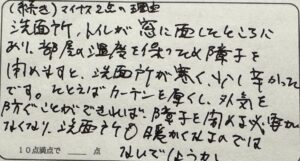 (続き)マイナス2点の理由
洗面所、トイレが窓に面してところに
あり、部屋の温度を保つため障子を
閉めますと、洗面所が寒く、少し辛かった
です。たとえばカーテンを厚くし、外気を
防ぐことができれば、障子を閉める必要が
なくなり、洗面所も暖かくなるのでは
ないでしょうか
10点満点で 点